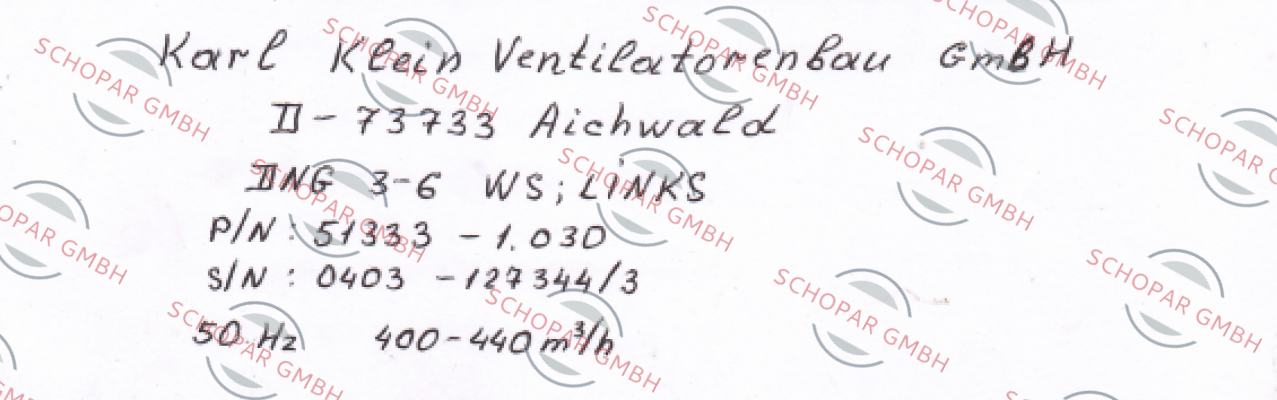 Karl Klein Ventilatorenbau GmbH
D-73733 Aichwald
DNG 3-6 WS; LINKS
P/N: 51333 - 1.030
S/N: 0403 - 127344/3
50 Hz 400-440 m³/h
SCHOPAR GMBH
SCHOPAR GMBH
SCHOPAR GMBH
SCHOPAR GMBH
SCHOPAR GMBH
SCHOPAR GMBH
SCHOPAR GMBH
SCHOPAR GMBH
SCHOPAR GMBH
SCHOPAR GMBH
SCHOPAR GMBH
SCHOPAR GMBH
SCHOPAR GMBH